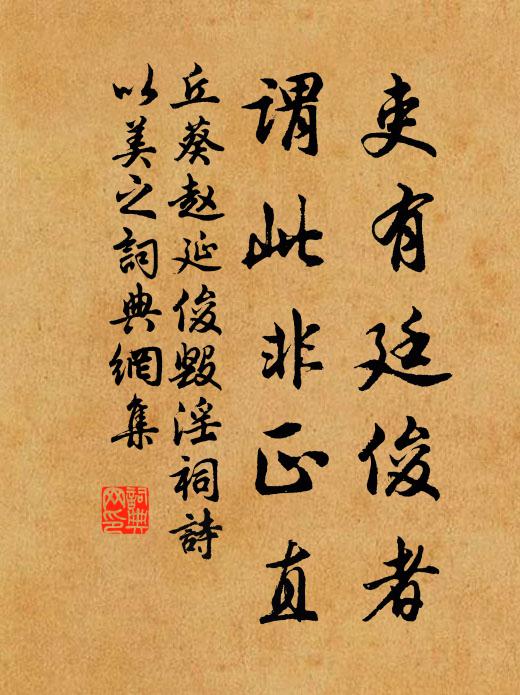 吏有廷俊者
謂此非正直
丘葵趙延俊毀淫祠詩
以美之詞典網集
詞典
网印